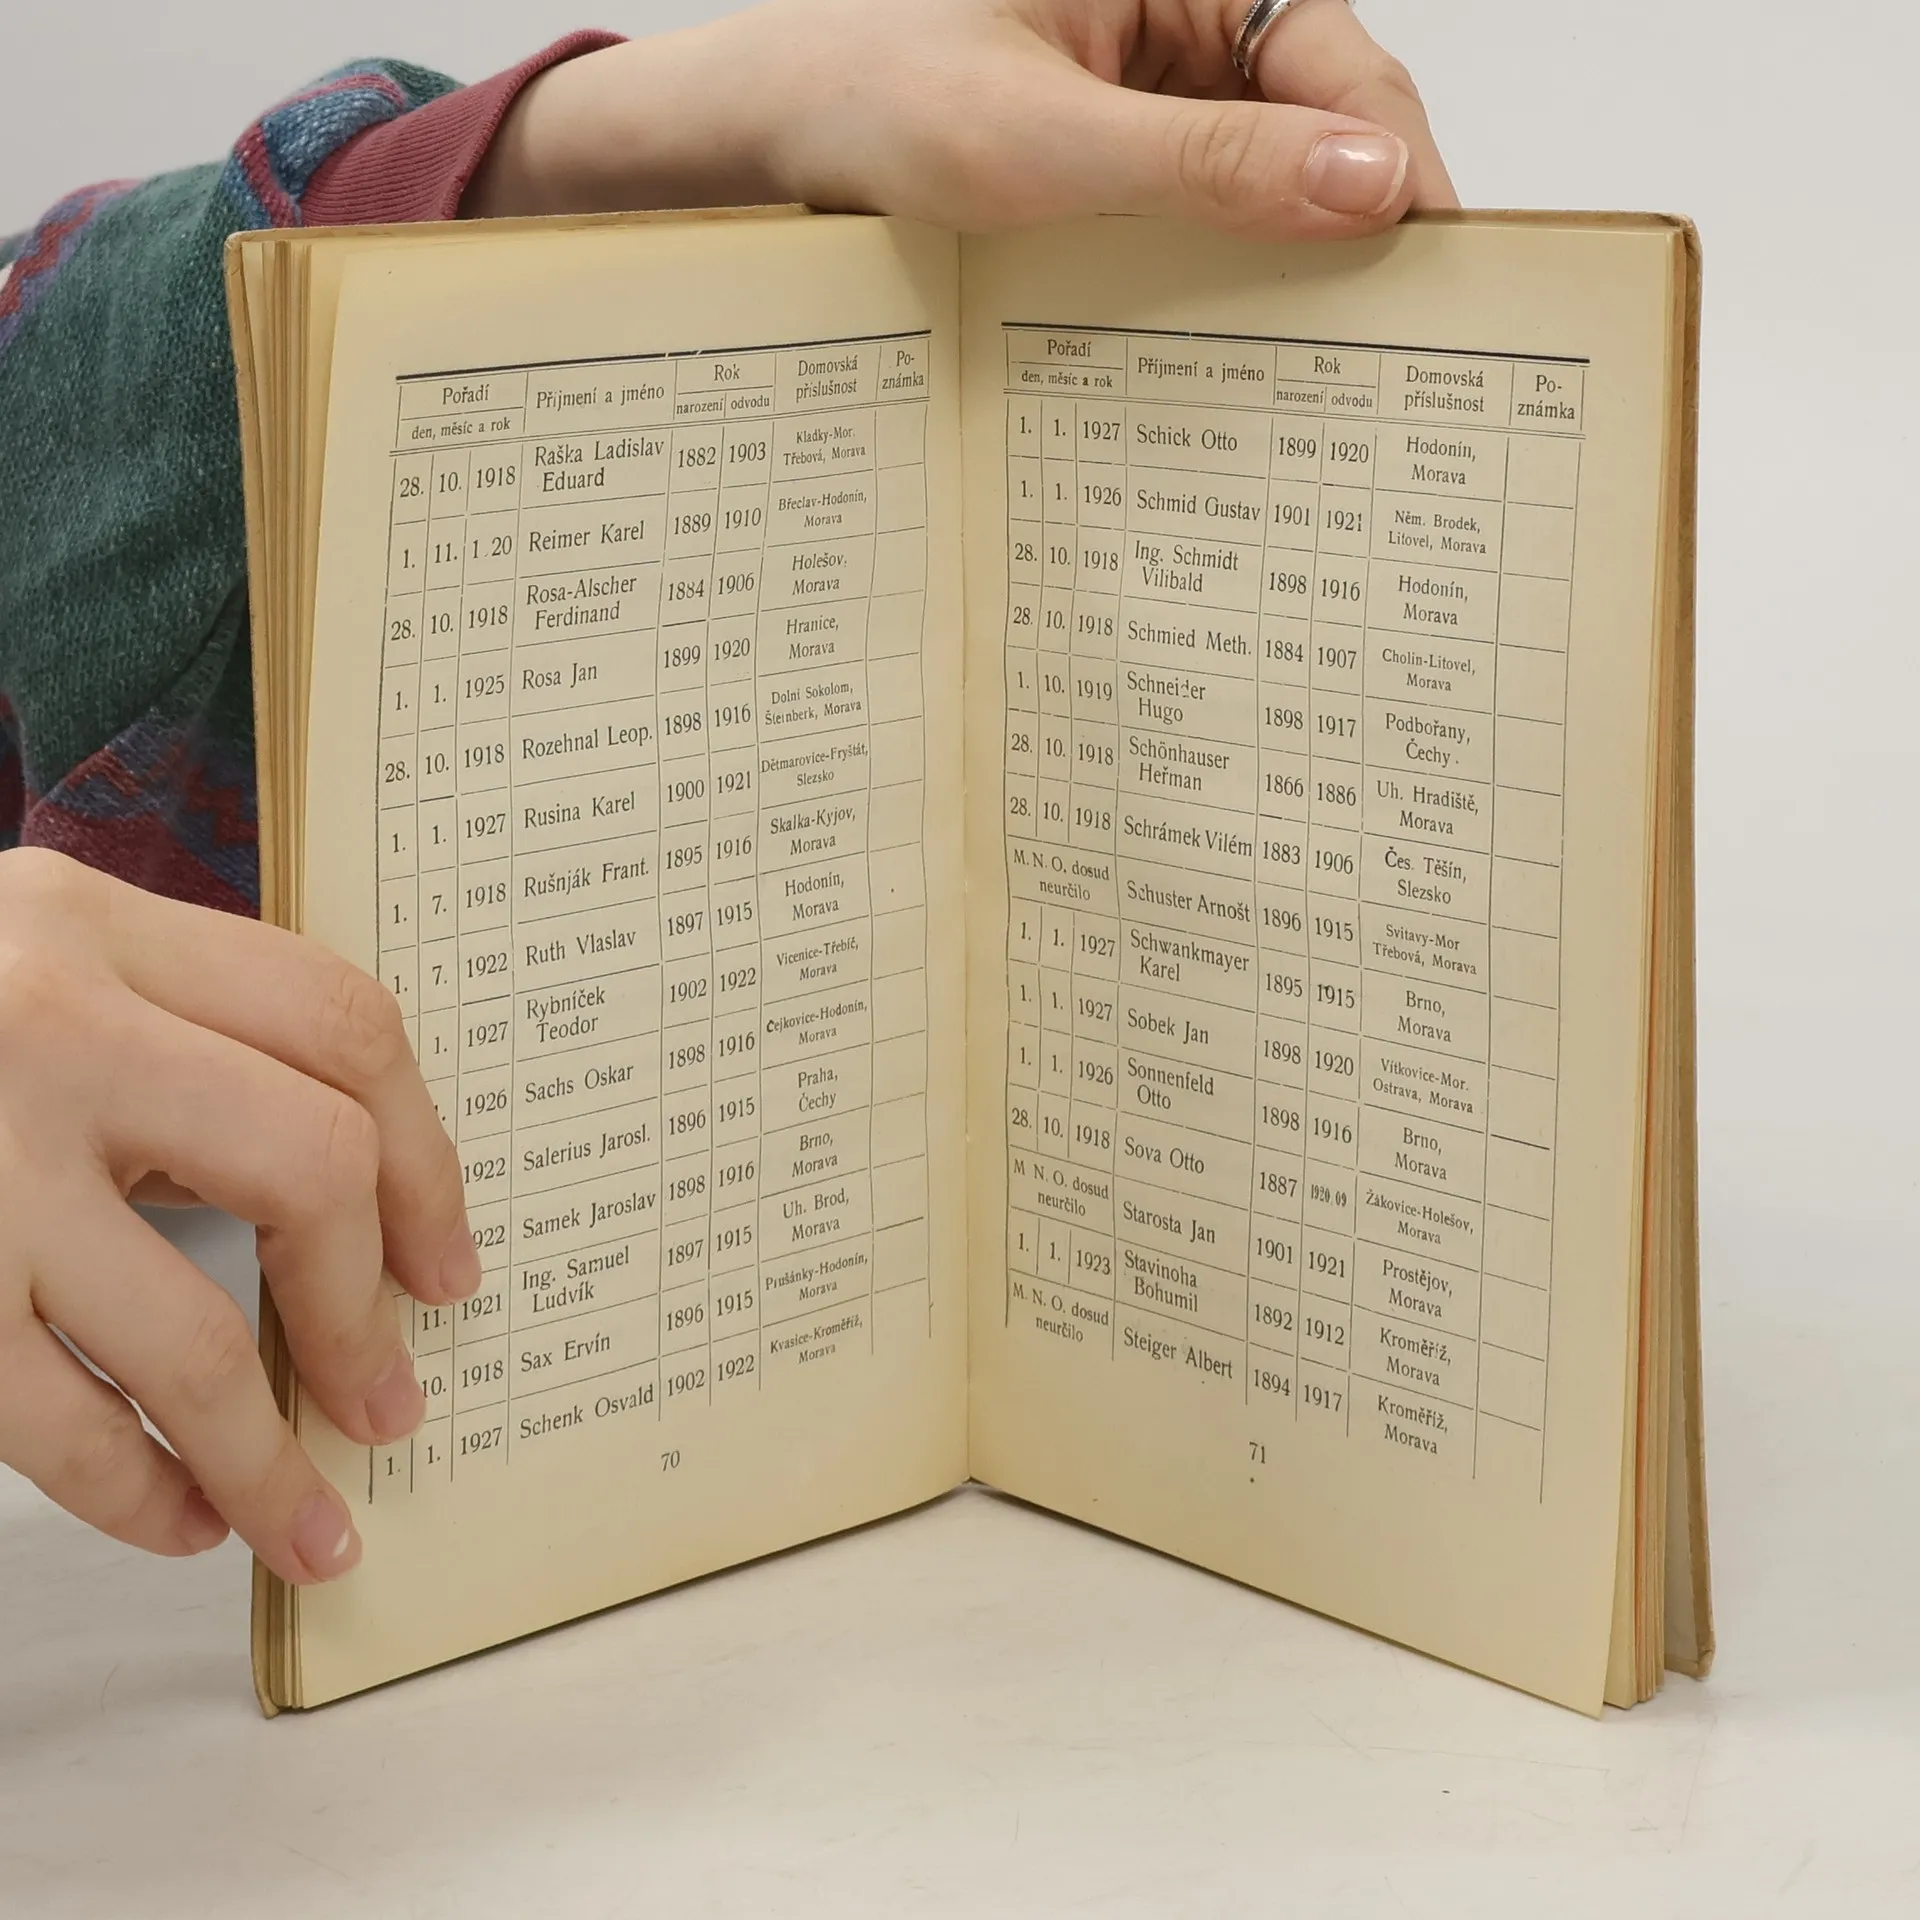 Pořadí
den, měsíc a rok
Příjmení a jméno
Rok
narození odvodu
Domovská
příslušnost
Po-
známka
28. 10. 1918 Raška Ladislav Eduard 1882 1903 Kladky-Mor. Třebová, Morava
1. 11. 1 20 Reimer Karel 1889 1910 Břeclav-Hodonín, Morava
28. 10. 1918 Rosa-Alscher Ferdinand 1884 1906 Holešov, Morava
1. 1. 1925 Rosa Jan 1899 1920 Hranice, Morava
28. 10. 1918 Rozehnal Leop. 1898 1916 Dolní Sokolom, Šteinberk, Morava
1. 1. 1927 Rusina Karel 1900 1921 Dětmarovice-Fryštát, Slezsko
1. 7. 1918 Rušnják Frant. 1895 1916 Skalka-Kyjov, Morava
1. 7. 1922 Ruth Vlaslav 1897 1915 Hodonín, Morava
1. 1927 Rybníček Teodor 1902 1922 Vicenice-Třebíč, Morava
1926 Sachs Oskar 1898 1916 Čejkovice-Hodonín, Morava
1922 Salerius Jarosl. 1896 1915 Praha, Čechy
922 Samek Jaroslav 1898 1916 Brno, Morava
11. 1921 Ing. Samuel Ludvík 1897 1915 Uh. Brod, Morava
10. 1918 Sax Ervín 1896 1915 Prušánky-Hodonín, Morava
1. 1. 1927 Schenk Osvald 1902 1922 Kvasice-Kroměříž, Morava
70
Pořadí
den, měsíc a rok
Příjmení a jméno
Rok
narození odvodu
Domovská
příslušnost
Po-
známka
1. 1. 1927 Schick Otto 1899 1920 Hodonín, Morava
1. 1. 1926 Schmid Gustav 1901 1921 Něm. Brodek, Litovel, Morava
28. 10. 1918 Ing. Schmidt Vilibald 1898 1916 Hodonín, Morava
28. 10. 1918 Schmied Meth. 1884 1907 Cholin-Litovel, Morava
1. 10. 1919 Schneider Hugo 1898 1917 Podbořany, Čechy.
28. 10. 1918 Schönhauser Heřman 1866 1886 Uh. Hradiště, Morava
28. 10. 1918 Schrámek Vilém 1883 1906 Čes. Těšín, Slezsko
M. N. O. dosud neurčilo Schuster Arnošt 1896 1915 Svitavy-Mor Třebová, Morava
1. 1. 1927 Schwankmayer Karel 1895 1915 Brno, Morava
1. 1. 1927 Sobek Jan 1898 1920 Vítkovice-Mor. Ostrava, Morava
1. 1. 1926 Sonnenfeld Otto 1898 1916 Brno, Morava
28. 10. 1918 Sova Otto 1887 1920.09 Žákovice-Holešov, Morava
M N. O. dosud neurčilo Starosta Jan 1901 1921 Prostějov, Morava
1. 1. 1923 Stavinoha Bohumil 1892 1912 Kroměříž, Morava
M. N. O. dosud neurčilo Steiger Albert 1894 1917 Kroměříž, Morava
71